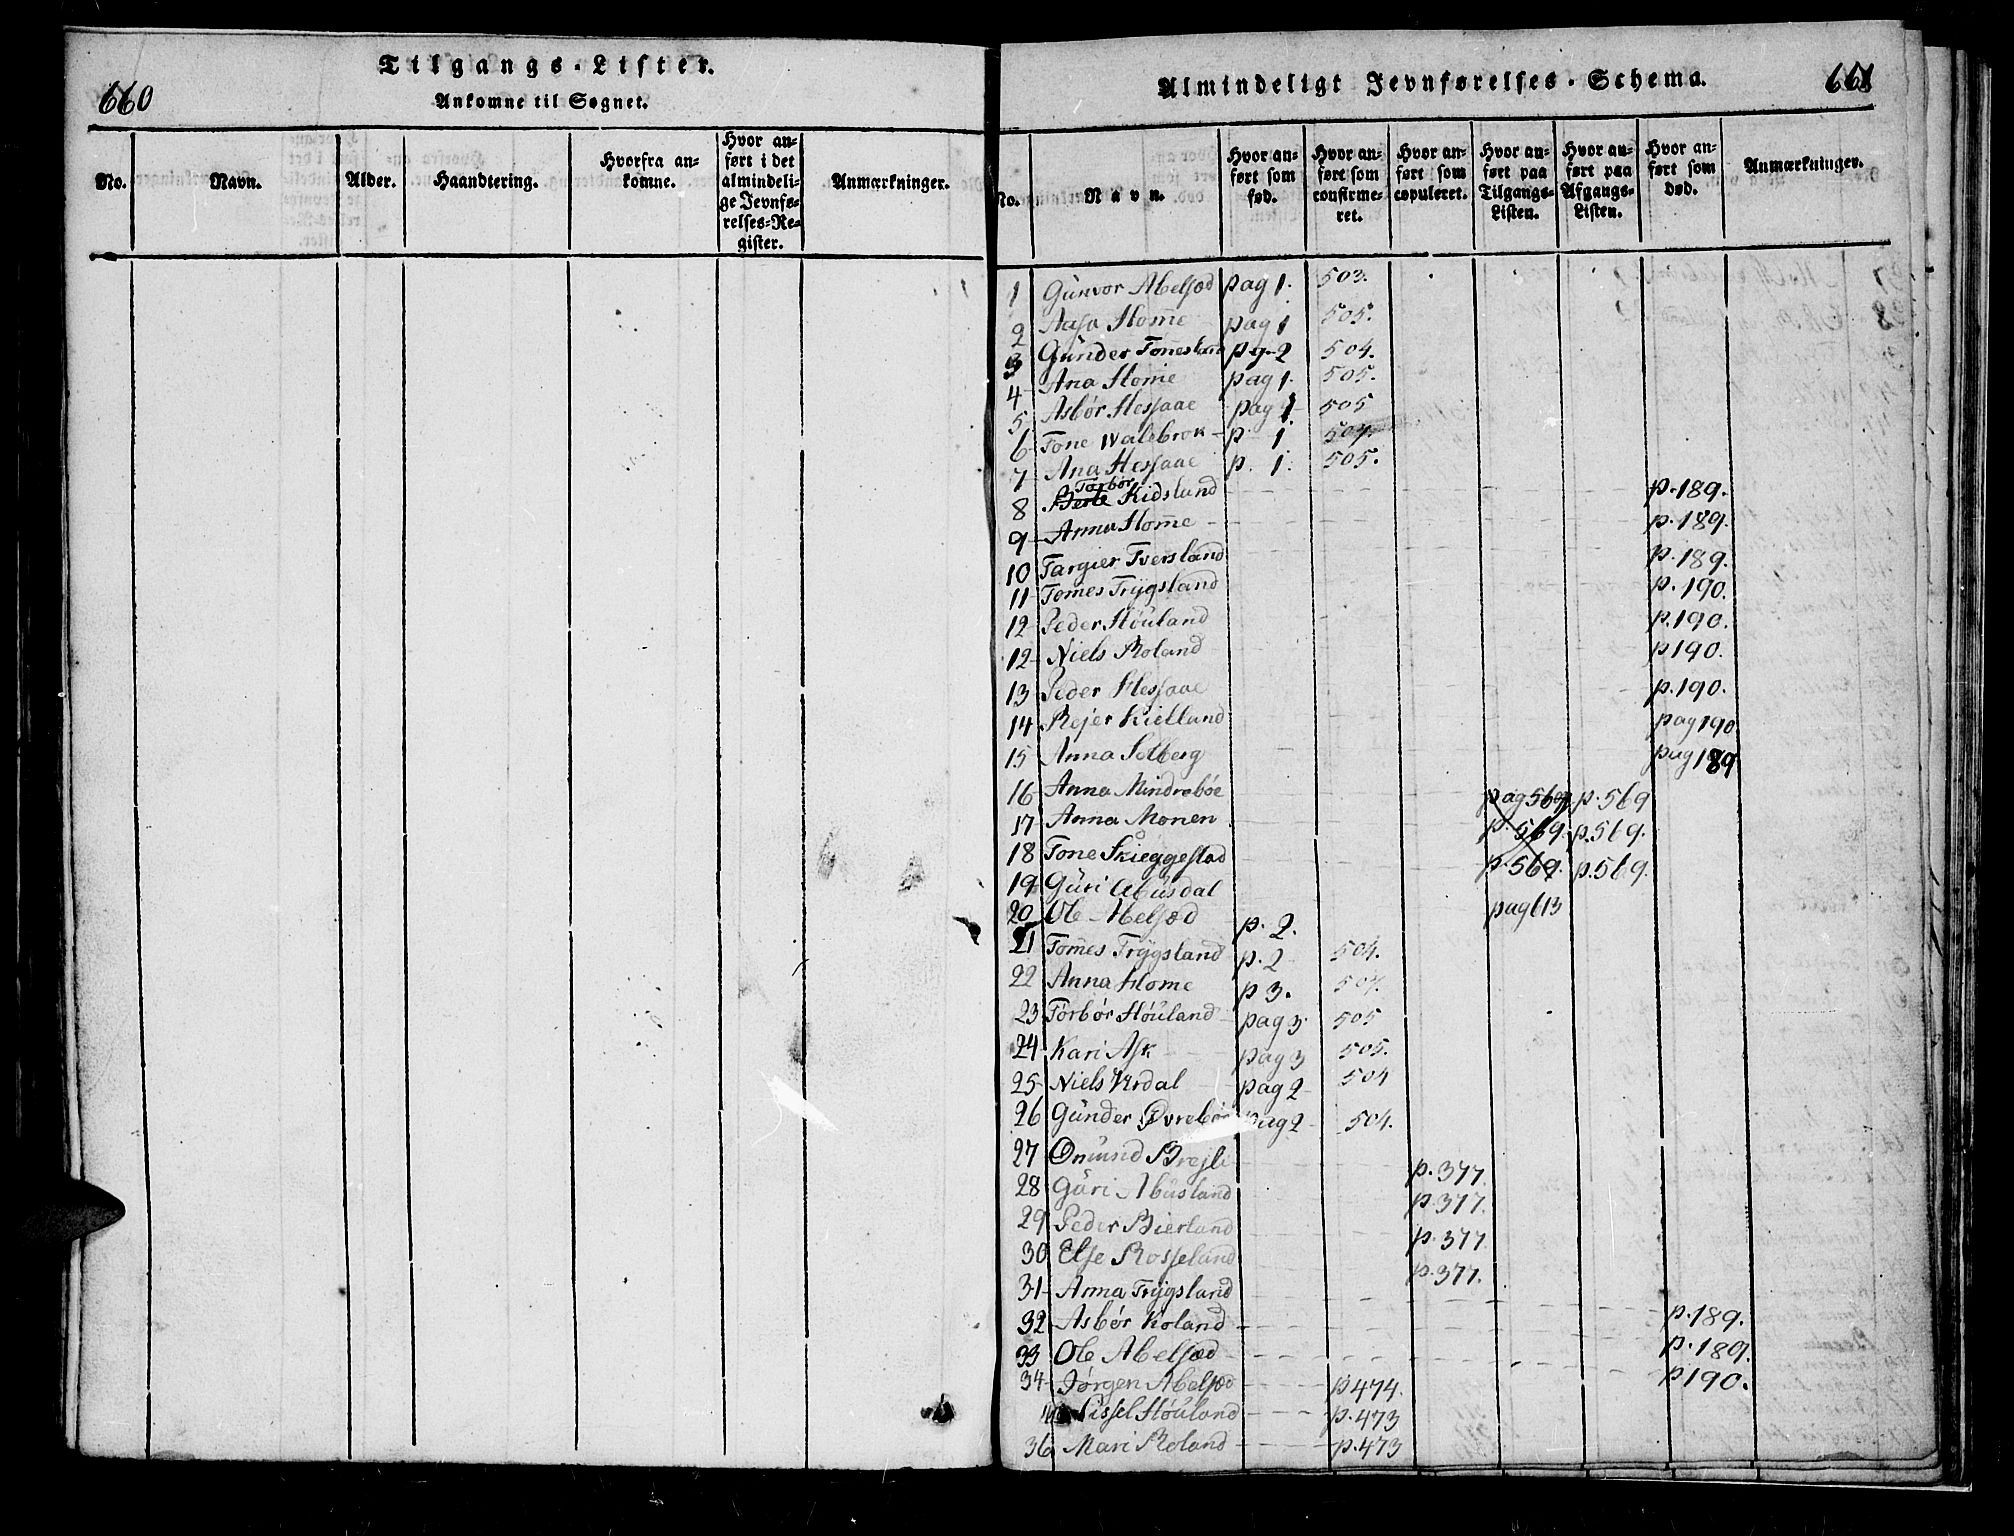 660
Tilgangs-Lister.
Ankomne til Sognet.
No. Navn. Alder. Haandtering. Hvorfra ankomne. Hvor anført i det almindelige Jevnførelses-Register. Anmærkninger.
Almindeligt Jevnførelses-Schema.
661
No. Navn. Hvor anført som fød. Hvor anført som confirmeret. Hvor anført som copuleret. Hvor anført paa Tilgangs-Listen. Hvor anført paa Afgangs-Listen. Hvor anført som død. Anmærkninger.
1 Gunvor Abelsæd pag 1. 503.
2 Aasa Home pag 1 505.
3 Gunder Tonesland pg 2 504.
4 Ana Home pag 1. 505.
5 Asbør Hessaae pag 1 505
6 Tone Walebrok p. 1 504.
7 Ana Hessaae p. 1. 505.
8 Torbør Kidsland p. 189.
9 Anna Home p. 189.
10 Targier Tversland p. 189.
11 Tomes Trygsland p. 190.
12 Peder Høuland p. 190.
12 Niels Roland p 190.
13 Peder Hessaae p. 190.
14 Rejer Kielland pag 190
15 Anna Solberg pag 189
16 Anna Mindrebøe pag 569 p. 569
17 Anna Monen p. 569. p. 569.
18 Tone Skieggestad p. 569. p. 569.
19 Guri Abusdal pag 613
20 Ole Abelsæd p. 2.
21 Tomes Trygsland p. 2 504.
22 Anna Home p 3. 504.
23 Torbør Høuland pag 3 505
24 Kari Ask pag 3 505.
25 Niels Urdal pag 2 504
26 Gunder Øvrebøe pag 2 504.
27 Omund Brejli p. 377.
28 Guri Abusland p. 377.
29 Peder Bierland p. 377
30 Else Rosseland p. 377.
31 Anna Trygsland p. 189.
32 Asbør Roland p. 189.
33 Ole Abelsæd p 190.
34 Jørgen Abelsæd p 474.
Sissel Høuland p. 473
36 Mari Roland p. 473